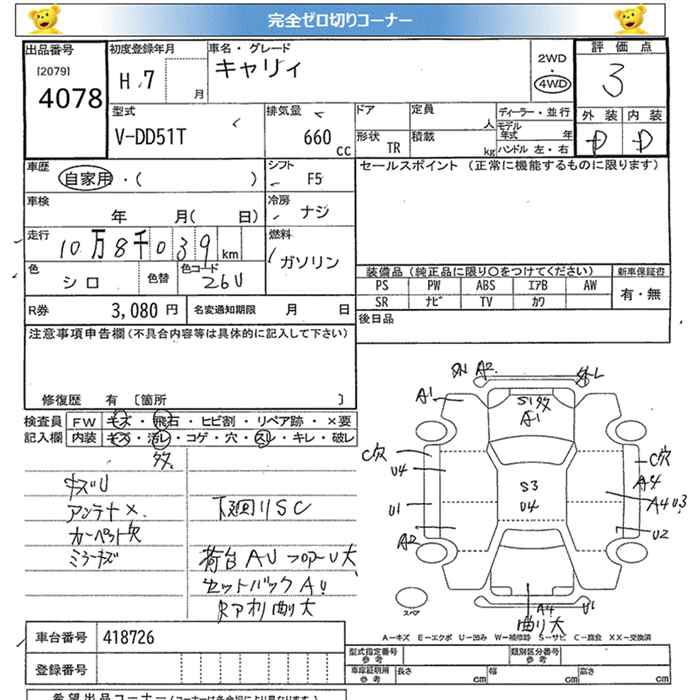 完全ゼロ切りコーナー
出品番号 初度登録年月 車名・グレード 2WD・4WD 評価点
[2079]
4078 H.7 月 キャリィ 3
型式 排気量 ドア 定員 人 ディーラー・並行 外装 内装
V-DD51T 660 cc 形状 TR 積載 kg モデル年式 年 ハンドル 左・右 D D
車歴 自家用・( ) シフト F5 セールスポイント (正常に機能するものに限ります)
車検 年 月( 日) 冷房 ナシ
走行 10万8千039km 燃料 ガソリン
色 シロ 色替 色コード 26U
装備品 (純正品に限り○をつけてください) 新車保証書
PS PW ABS エアB AW 有・無
SR ナビ TV カワ
R券 3,080円 名変通知期限 月 日 後日品
注意事項申告欄(不具合内容等は具体的に記入して下さい)
修復歴 有 [箇所 ]
検査員記入欄 FW キズ・飛石・ヒビ割・リペア跡・×要
内装 キズ・汚レ・コゲ・穴・スレ・キレ・破レ
多々
キズU
アンテナ×
カーペット欠
ミラーキズ
下廻リSC
荷台AUフロアーU大
セットバックAU
Rアオリ曲リ大
A2 外レ
A1 S1多々 A1
C穴 U4 U1 A2
S3 U4
C穴 A4 A4U3 U2
スペア A4 U1
曲リ大
A-キズ E-エクボ U-凹み W-補修跡 S-サビ C-腐食 XX-交換済
車台番号 418726 型式指定番号 参考 類別区分番号 参考
登録番号 車庫証明用 参考 長さ cm 幅 cm 高さ cm
希望出品コーナー(コーナーは各会場により異なります)